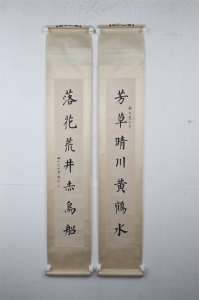 芳草晴川黄鶴水
落花荒井赤烏船